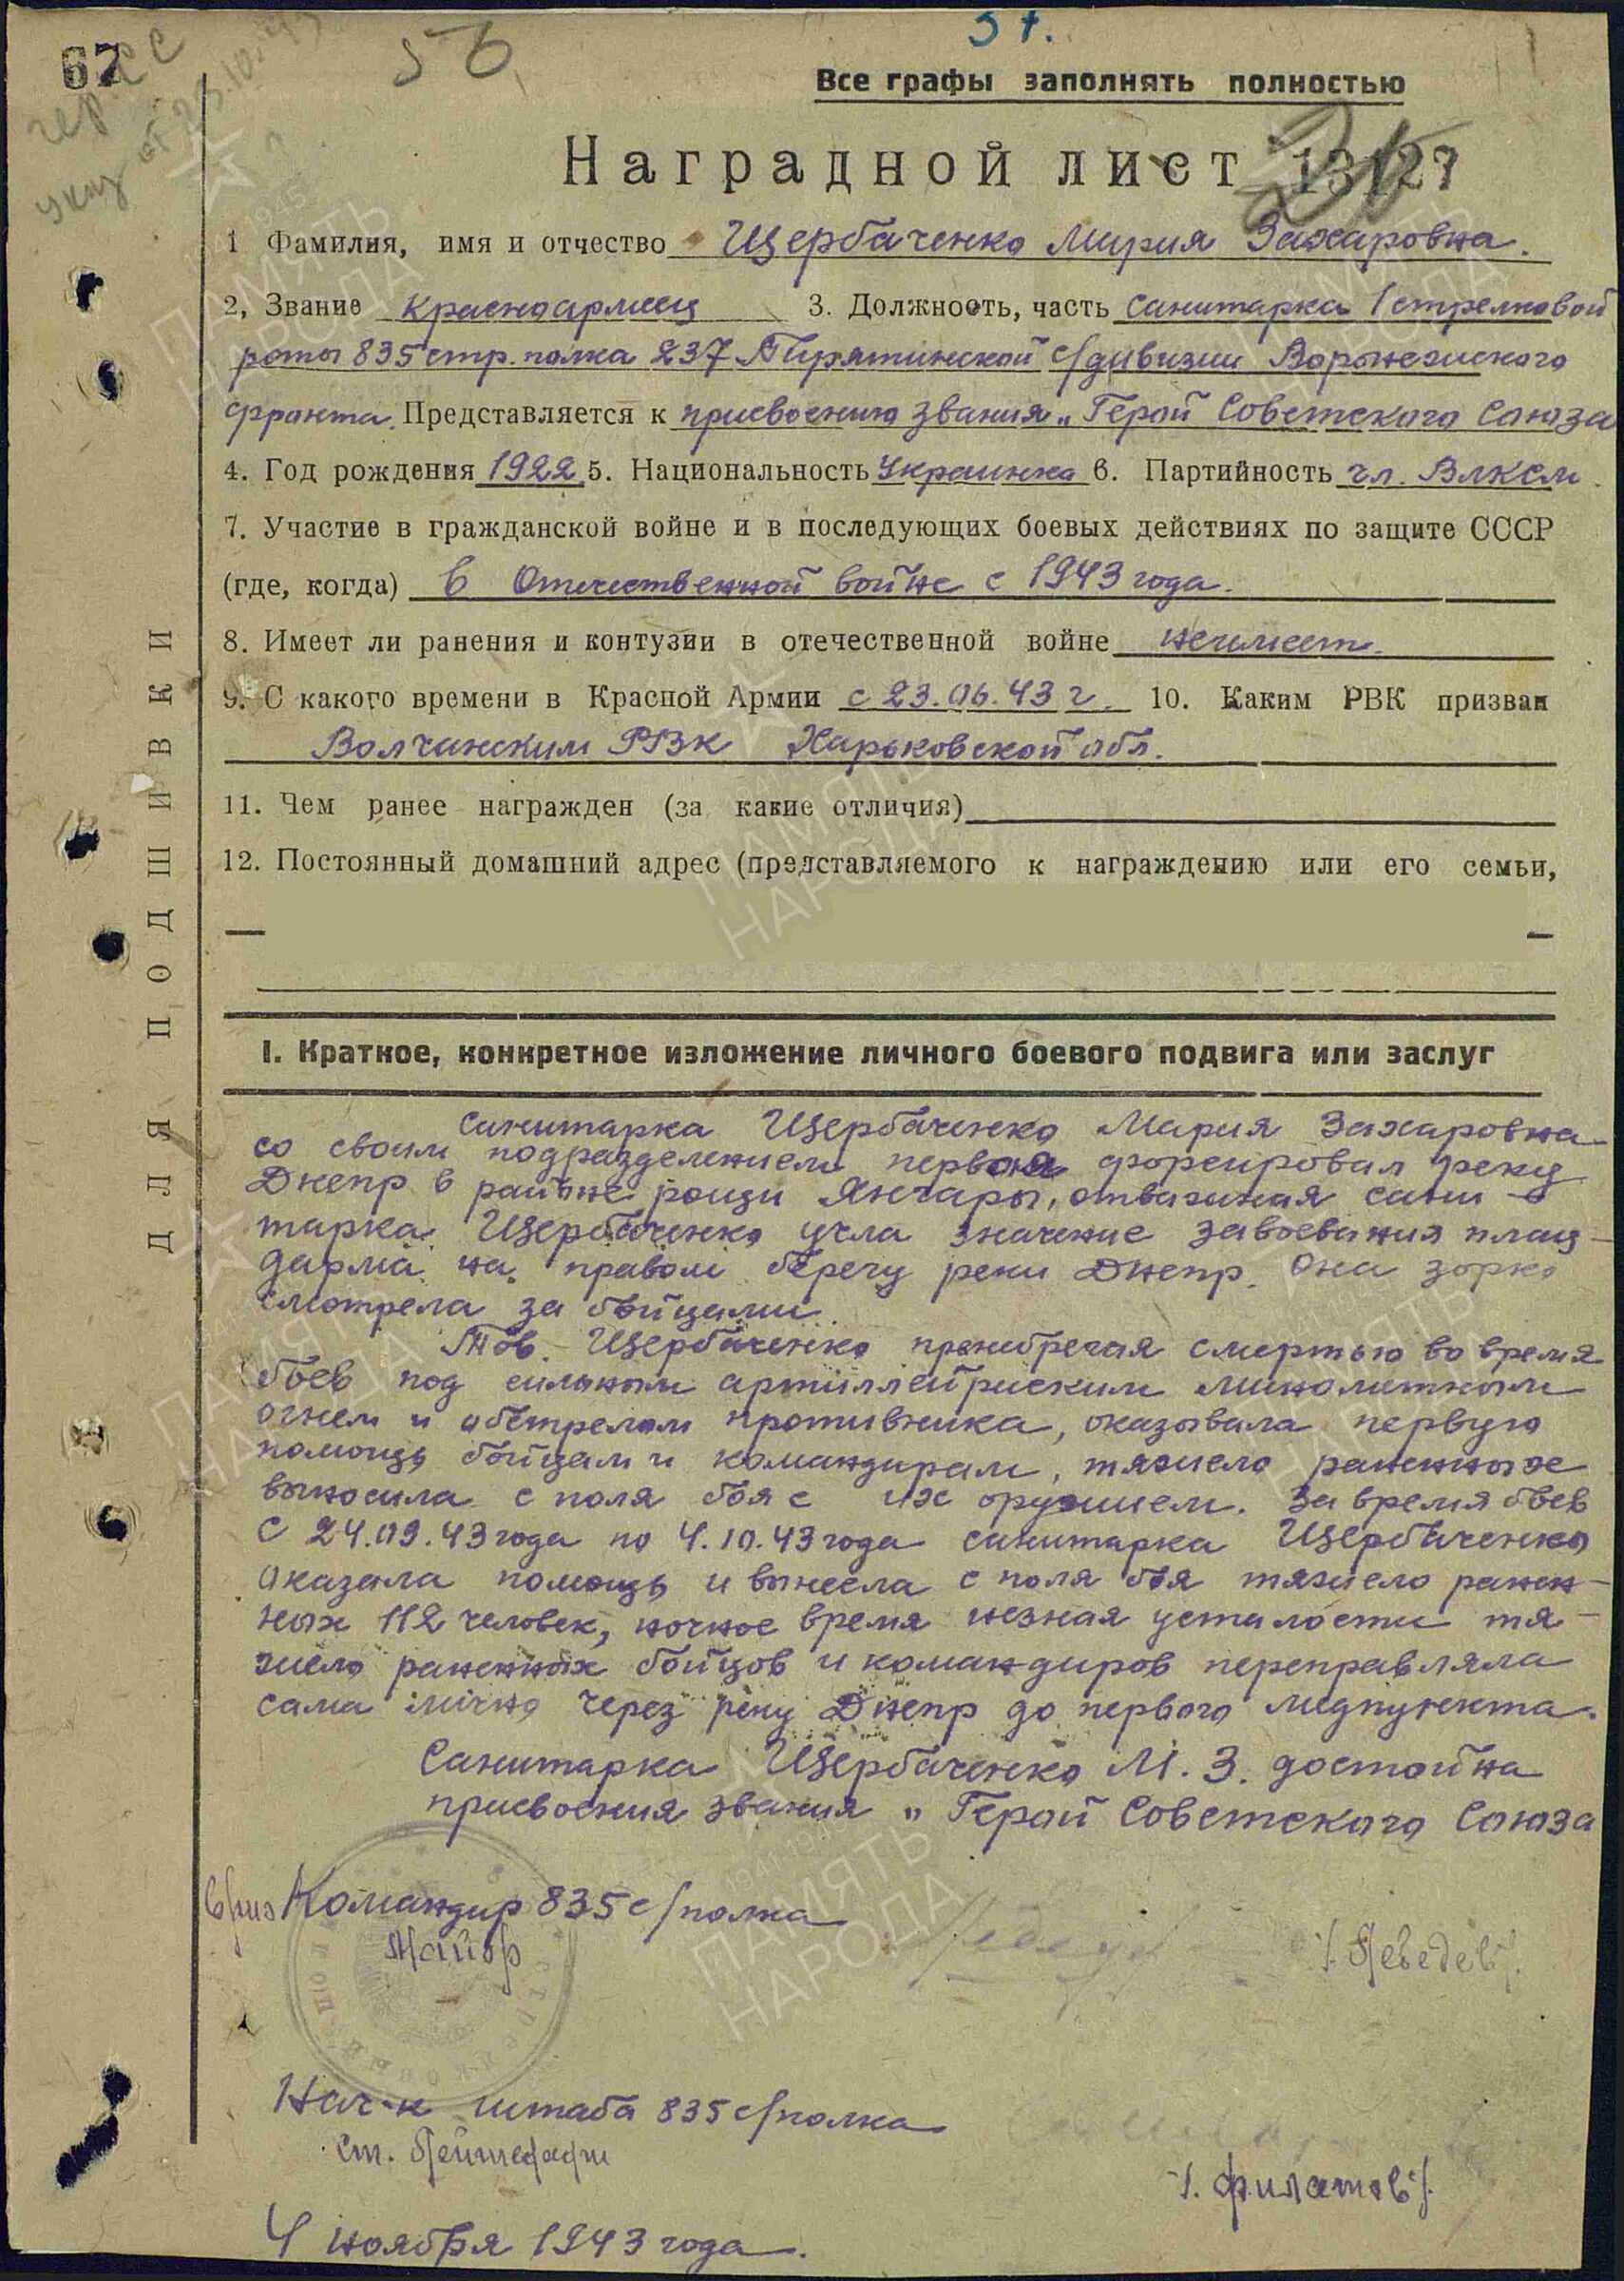 67
56
57.
Все графы заполнять полностью
Наградной лист 13/27
1 Фамилия, имя и отчество Щербаченко Мария Захаровна.
2, Звание красноармеец 3. Должность, часть санитарка 1 стрелковой
роты 835 стр. полка 237 Пирятинской с/дивизии Воронежского
фронта. Представляется к присвоению звания „Герой Советского Союза
4. Год рождения 1922 5. Национальность Украинка 6. Партийность чл. ВЛКСМ.
7. Участие в гражданской войне и в последующих боевых действиях по защите СССР
(где, когда) в Отечественной войне с 1943 года.
8. Имеет ли ранения и контузии в отечественной войне неимеет.
9. С какого времени в Красной Армии с 23.06.43 г. 10. Каким РВК призван
Волчанским РВК Харьковской обл.
11. Чем ранее награжден (за какие отличия)
12. Постоянный домашний адрес (представляемого к награждению или его семьи,
ДЛЯ ПОДШИВКИ
I. Краткое, конкретное изложение личного боевого подвига или заслуг
Санитарка Щербаченко Мария Захаровна
со своим подразделением первая форсировал реку
Днепр в районе рощи Янчары, отважная сани-
тарка Щербаченко учла значение завоевания плац-
дарма на правом берегу реки Днепр. Она зорко
смотрела за бойцами.
Тов. Щербаченко пренебрегая смертью во время
боев под сильным артиллейриским минометным
огнем и обстрелом противника, оказывала первую
помощь бойцам и командирам, тяжело раненных
выносила с поля боя с их оружием. За время боев
С 24.09.43 года по 4.10.43 года санитарка Щербаченко
оказала помощь и вынесла с поля боя тяжело ранен-
ных 112 человек, ночное время незная усталости тя-
жело раненных бойцов и командиров переправляла
сама лично через реку Днепр до первого медпункта.
Санитарка Щербаченко М. З. достойна
присвоения звания „Герой Советского Союза
Командир 835 с/полка
Майор
/Лебедев/.
Нач-к штаба 835 с/полка
ст. Лейтенант
/Филатов/.
4 ноября 1943 года.
ПАМЯТЬ
НАРОДА